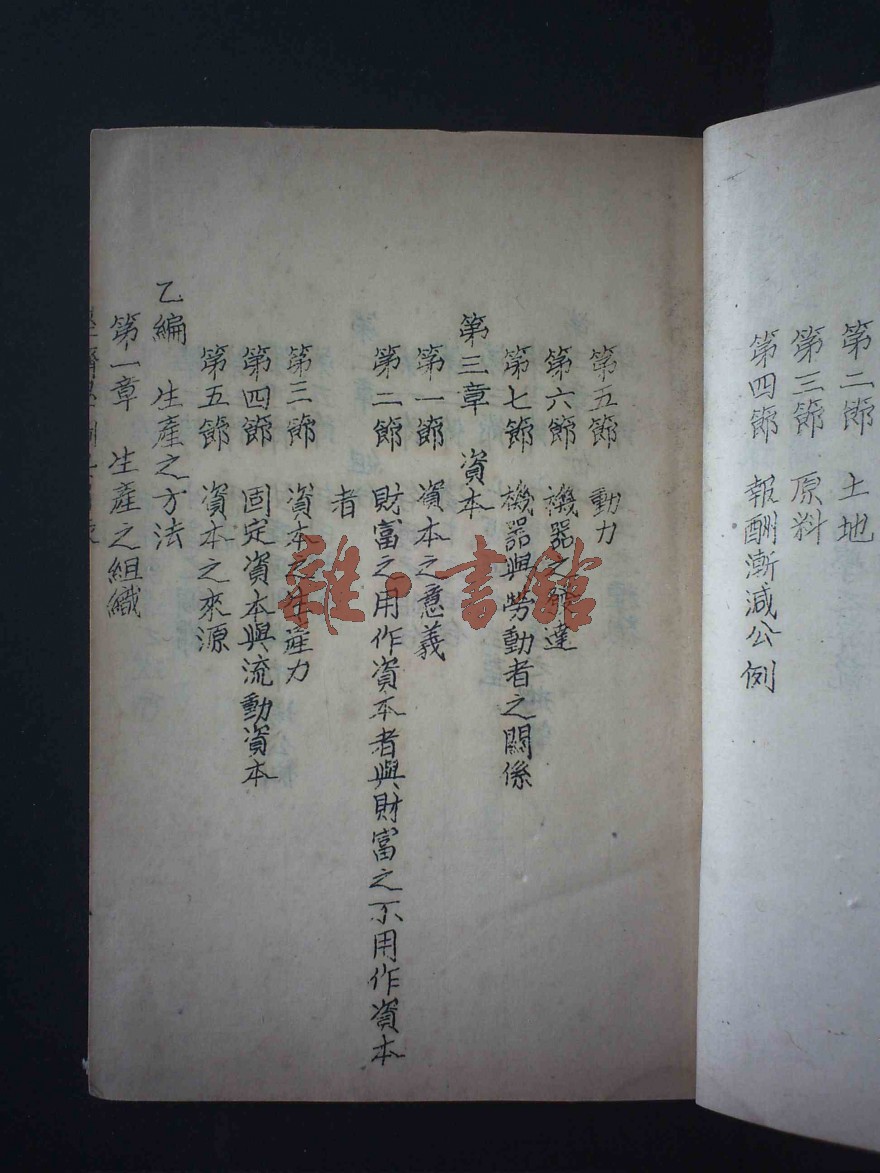 第二節 土地
第三節 原料
第四節 報酬漸減公例
第五節 動力
第六節 機器之發達
第七節 機器與勞動者之關係
第三章 資本
第一節 資本之意義
第二節 財富之用作資本者與財富之不用作資本
者
第三節 資本之生產力
第四節 固定資本與流動資本
第五節 資本之來源
乙編 生產之方法
第一章 生產之組織
雜·書館